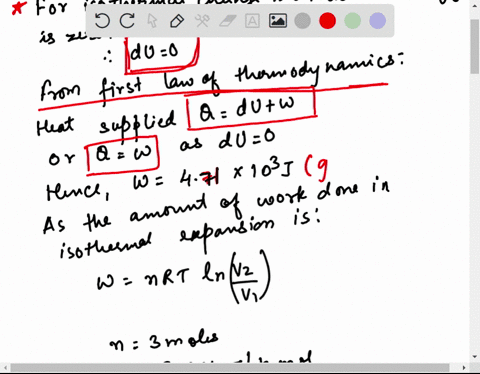 * For
is
∴ dU=0
From first law of thermodynamics:
Heat supplied Q = dU+W
or Q = W as dU=0
Hence, W = 4.71 × 10³J (g
As the amount of work done in
isothermal expansion is:
W = nRT ln(V2/V1)
n = 3 moles